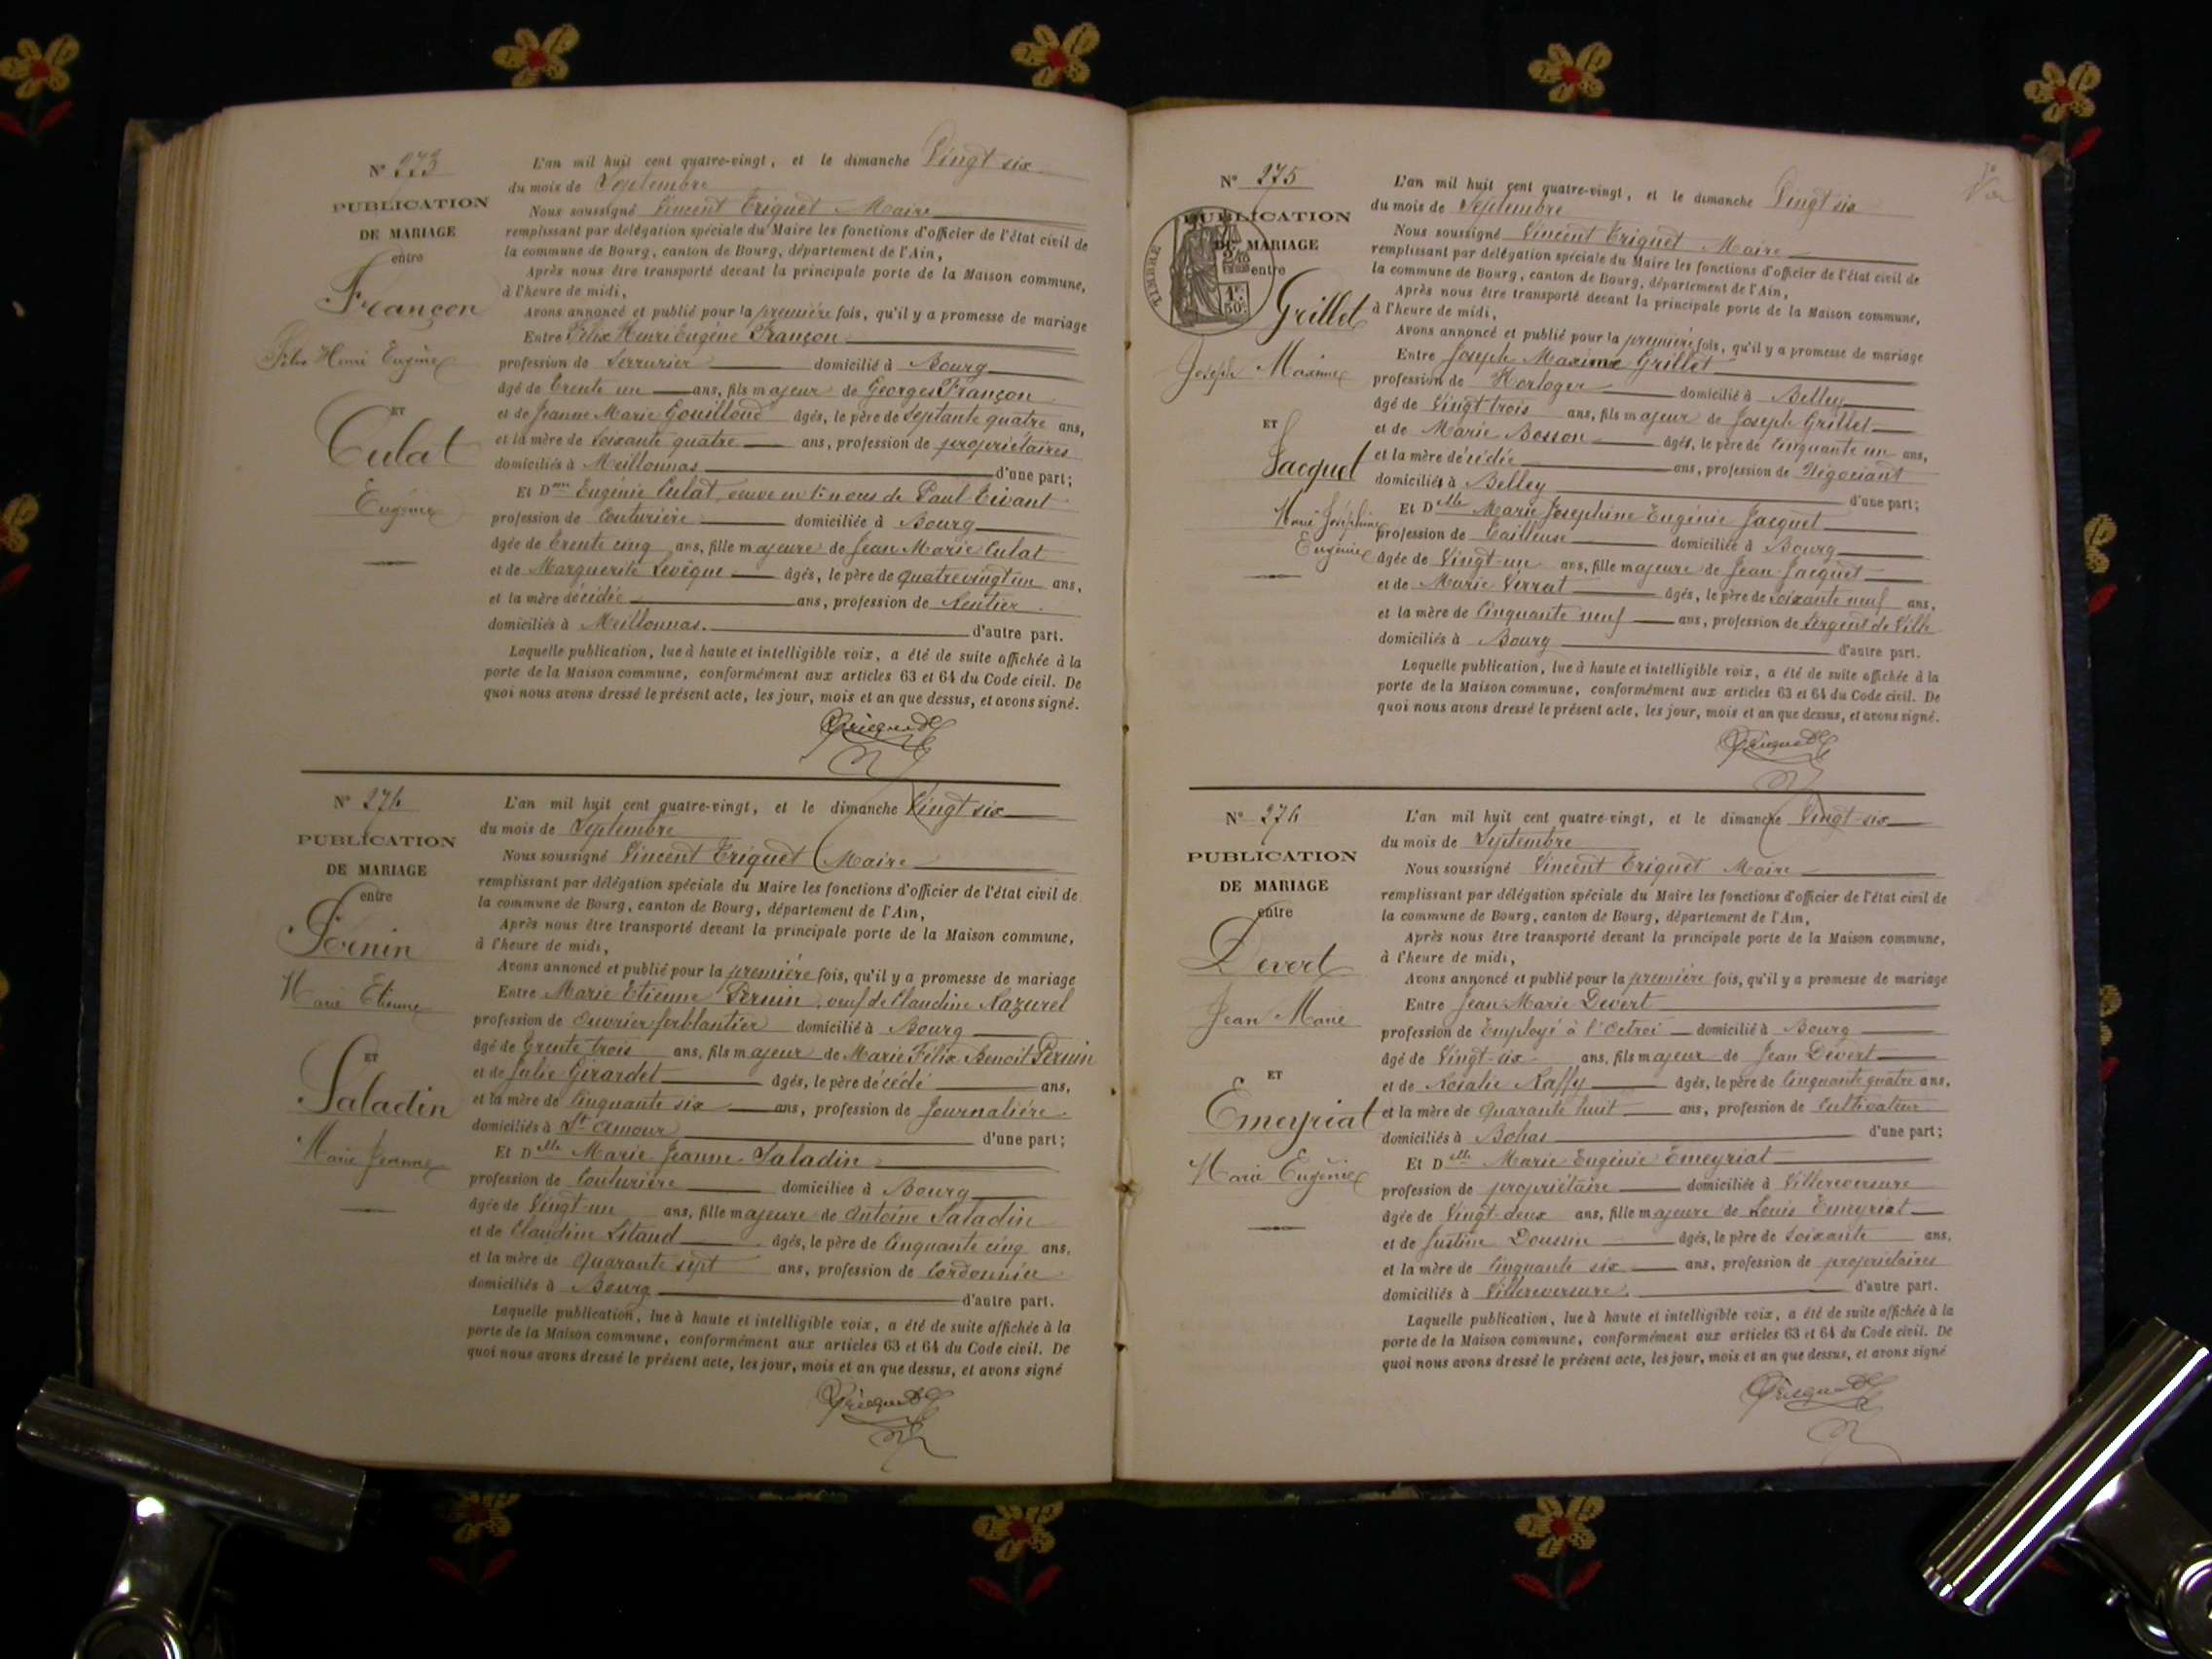 N° 273
PUBLICATION
DE MARIAGE
entre
Françon
Félix Henri Eugène
ET
Culat
Eugénie
L'an mil huit cent quatre-vingt, et le dimanche Vingt six
du mois de Septembre
Nous soussigné Vincent Triquet Maire
remplissant par délégation spéciale du Maire les fonctions d'officier de l'état civil de
la commune de Bourg, canton de Bourg, département de l'Ain,
Après nous être transporté devant la principale porte de la Maison commune,
à l'heure de midi,
Avons annoncé et publié pour la première fois, qu'il y a promesse de mariage
Entre Félix Henri Eugène Françon
profession de Serrurier domicilié à Bourg
âgé de Trente un ans, fils majeur de Georges Françon
et de Jeanne Marie Gouilloud âgés, le père de Septante quatre ans,
et la mère de Soixante quatre ans, profession de propriétaires
domiciliés à Meillonnas d'une part;
Et Dme Eugénie Culat, veuve en 1es noces de Paul Tivant
profession de Couturière domiciliée à Bourg
âgée de Trente cinq ans, fille majeure de Jean Marie Culat
et de Marguerite Levêque âgés, le père de quatre vingt un ans,
et la mère décédée ans, profession de Rentier
domiciliés à Meillonnas. d'autre part.
Laquelle publication, lue à haute et intelligible voix, a été de suite affichée à la
porte de la Maison commune, conformément aux articles 63 et 64 du Code civil. De
quoi nous avons dressé le présent acte, les jour, mois et an que dessus, et avons signé.
Triquet
N° 274
PUBLICATION
DE MARIAGE
entre
Pernin
Marie Etienne
ET
Saladin
Marie Jeanne
L'an mil huit cent quatre-vingt, et le dimanche Vingt six
du mois de Septembre
Nous soussigné Vincent Triquet Maire
remplissant par délégation spéciale du Maire les fonctions d'officier de l'état civil de
la commune de Bourg, canton de Bourg, département de l'Ain,
Après nous être transporté devant la principale porte de la Maison commune,
à l'heure de midi,
Avons annoncé et publié pour la première fois, qu'il y a promesse de mariage
Entre Marie Etienne Pernin, veuf de Claudine Nazurel
profession de Ouvrier ferblantier domicilié à Bourg
âgé de Trente trois ans, fils majeur de Marie Félix Benoit Pernin
et de Julie Girardet âgés, le père décédé ans,
et la mère de Cinquante six ans, profession de Journalière
domiciliés à St Amour d'une part;
Et Delle Marie Jeanne Saladin
profession de Couturière domiciliée à Bourg
âgée de Vingt-un ans, fille majeure de Antoine Saladin
et de Claudine Litaud âgés, le père de Cinquante cinq ans,
et la mère de Quarante sept ans, profession de Cordonnier
domiciliés à Bourg d'autre part.
Laquelle publication, lue à haute et intelligible voix, a été de suite affichée à la
porte de la Maison commune, conformément aux articles 63 et 64 du Code civil. De
quoi nous avons dressé le présent acte, les jour, mois et an que dessus, et avons signé
Triquet
N° 275
PUBLICATION
DE MARIAGE
entre
TIMBRE
1F
50c
Grillet
Joseph Maxime
ET
Jacquet
Marie Joséphine
Eugénie
L'an mil huit cent quatre-vingt, et le dimanche Vingt six
du mois de Septembre
Nous soussigné Vincent Triquet Maire
remplissant par délégation spéciale du Maire les fonctions d'officier de l'état civil de
la commune de Bourg, canton de Bourg, département de l'Ain,
Après nous être transporté devant la principale porte de la Maison commune,
à l'heure de midi,
Avons annoncé et publié pour la première fois, qu'il y a promesse de mariage
Entre Joseph Maxime Grillet
profession de Horloger domicilié à Belley
âgé de Vingt trois ans, fils majeur de Joseph Grillet
et de Marie Bosson âgés, le père de Cinquante un ans,
et la mère décédée ans, profession de Négociant
domiciliés à Belley d'une part;
Et Delle Marie Josephine Eugénie Jacquet
profession de Tailleuse domiciliée à Bourg
âgée de Vingt-un ans, fille majeure de Jean Jacquet
et de Marie Verrat âgés, le père de Soixante neuf ans,
et la mère de Cinquante neuf ans, profession de Sergent de Ville
domiciliés à Bourg d'autre part.
Laquelle publication, lue à haute et intelligible voix, a été de suite affichée à la
porte de la Maison commune, conformément aux articles 63 et 64 du Code civil. De
quoi nous avons dressé le présent acte, les jour, mois et an que dessus, et avons signé.
Triquet
N° 276
PUBLICATION
DE MARIAGE
entre
Devert
Jean Marie
ET
Emeyriat
Marie Eugénie
L'an mil huit cent quatre-vingt, et le dimanche Vingt-six
du mois de Septembre
Nous soussigné Vincent Triquet Maire
remplissant par délégation spéciale du Maire les fonctions d'officier de l'état civil de
la commune de Bourg, canton de Bourg, département de l'Ain,
Après nous être transporté devant la principale porte de la Maison commune,
à l'heure de midi,
Avons annoncé et publié pour la première fois, qu'il y a promesse de mariage
Entre Jean Marie Devert
profession de Employé à l'Octroi domicilié à Bourg
âgé de Vingt-six ans, fils majeur de Jean Devert
et de Rosalie Raffy âgés, le père de Cinquante quatre ans,
et la mère de Quarante huit ans, profession de Cultivateur
domiciliés à Bohas d'une part;
Et Delle Marie Eugénie Emeyriat
profession de propriétaire domiciliée à Villereversure
âgée de Vingt-deux ans, fille majeure de Louis Emeyriat
et de Justine Doussin âgés, le père de Soixante ans,
et la mère de Cinquante six ans, profession de propriétaires
domiciliés à Villereversure. d'autre part.
Laquelle publication, lue à haute et intelligible voix, a été de suite affichée à la
porte de la Maison commune, conformément aux articles 63 et 64 du Code civil. De
quoi nous avons dressé le présent acte, les jour, mois et an que dessus, et avons signé
Triquet